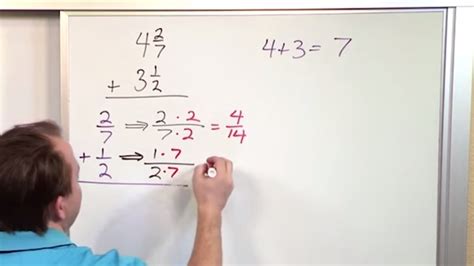 4 2/7
+ 3 1/2
4+3=7
2/7 ⇒ 2·2/7·2 = 4/14
+ 1/2 ⇒ 1·7/2·7